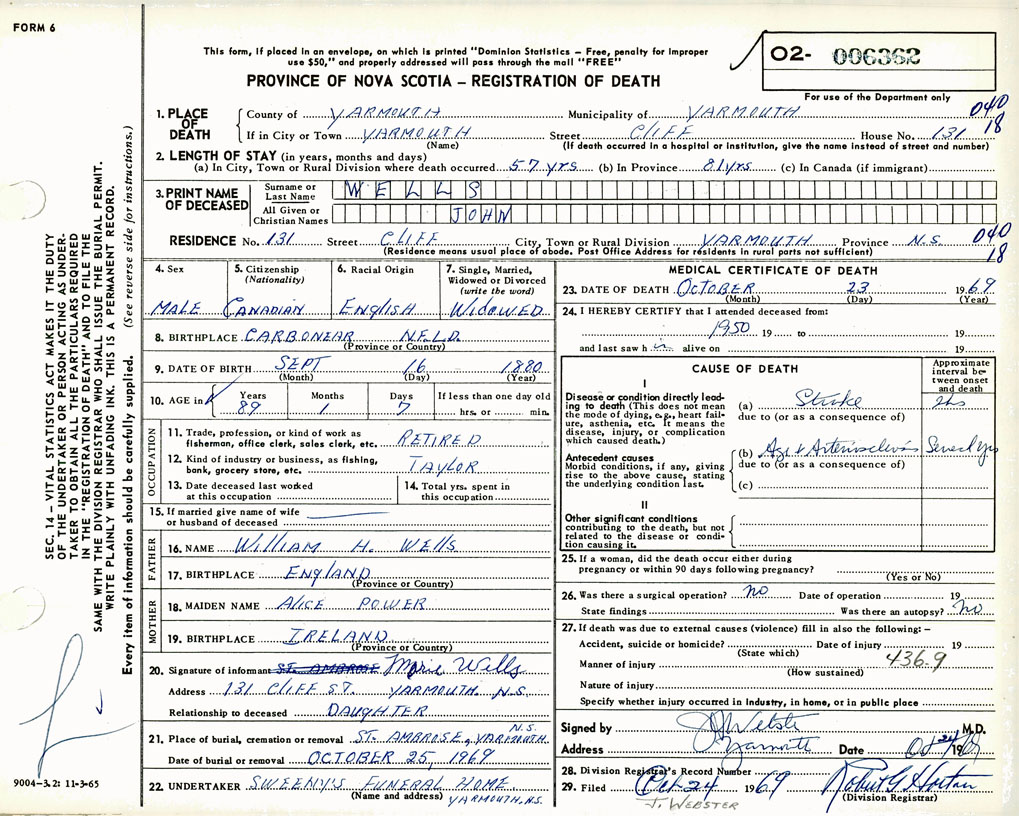 FORM 6
This form, if placed in an envelope, on which is printed "Dominion Statistics – Free, penalty for improper
use $50," and properly addressed will pass through the mail "FREE"
PROVINCE OF NOVA SCOTIA – REGISTRATION OF DEATH
02- 006362
For use of the Department only
SEC. 14 – VITAL STATISTICS ACT MAKES IT THE DUTY
OF THE UNDERTAKER OR PERSON ACTING AS UNDER-
TAKER TO OBTAIN ALL THE PARTICULARS REQUIRED
IN THE "REGISTRATION OF DEATH" AND TO FILE THE
SAME WITH THE DIVISION REGISTRAR WHO SHALL ISSUE THE BURIAL PERMIT.
WRITE PLAINLY WITH UNFADING INK. THIS IS A PERMANENT RECORD.
Every item of information should be carefully supplied. (See reverse side for instructions.)
1. PLACE OF DEATH
County of YARMOUTH Municipality of YARMOUTH 040
If in City or Town YARMOUTH Street CLIFF House No. 131 18
(Name) (If death occurred in a hospital or institution, give the name instead of street and number)
2. LENGTH OF STAY (in years, months and days)
(a) In City, Town or Rural Division where death occurred 57 yrs (b) In Province 81 yrs (c) In Canada (if immigrant)
3. PRINT NAME OF DECEASED
Surname or Last Name WELLS
All Given or Christian Names JOHN
RESIDENCE No. 131 Street CLIFF City, Town or Rural Division YARMOUTH Province N.S. 040
(Residence means usual place of abode. Post Office Address for residents in rural parts not sufficient) 18
4. Sex
MALE
5. Citizenship (Nationality)
CANADIAN
6. Racial Origin
ENGLISH
7. Single, Married, Widowed or Divorced (write the word)
WIDOWED
8. BIRTHPLACE CARBONEAR NFLD.
(Province or Country)
9. DATE OF BIRTH SEPT 16 1880
(Month) (Day) (Year)
10. AGE in Years Months Days If less than one day old
89 1 7 hrs. or min.
OCCUPATION
11. Trade, profession, or kind of work as
fisherman, office clerk, sales clerk, etc. RETIRED
12. Kind of industry or business, as fishing,
bank, grocery store, etc. TAYLOR
13. Date deceased last worked
at this occupation
14. Total yrs. spent in
this occupation
15. If married give name of wife
or husband of deceased
FATHER
16. NAME WILLIAM H. WELLS
17. BIRTHPLACE ENGLAND
(Province or Country)
MOTHER
18. MAIDEN NAME ALICE POWER
19. BIRTHPLACE IRELAND
(Province or Country)
20. Signature of informant ST. AMBROSE Marie Wells
Address 131 CLIFF ST. YARMOUTH. N.S.
Relationship to deceased DAUGHTER
21. Place of burial, cremation or removal ST. AMBROSE, YARMOUTH N.S.
Date of burial or removal OCTOBER 25, 1969
22. UNDERTAKER SWEENY'S FUNERAL HOME
(Name and address) YARMOUTH, N.S.
9004-3.2: 11-3-65
MEDICAL CERTIFICATE OF DEATH
23. DATE OF DEATH OCTOBER 23 1969
(Month) (Day) (Year)
24. I HEREBY CERTIFY that I attended deceased from:
1950 19 to 19
and last saw h im alive on 19
CAUSE OF DEATH
Approximate interval between onset and death
I
Disease or condition directly lead-
ing to death (This does not mean
the mode of dying, e.g., heart failure,
asthenia, etc. It means the
disease, injury, or complication
which caused death.)
(a) Stroke
due to (or as a consequence of)
Antecedent causes
Morbid conditions, if any, giving
rise to the above cause, stating
the underlying condition last.
(b) Age & Arteriosclerosis Several yrs
due to (or as a consequence of)
(c)
II
Other significant conditions
contributing to the death, but not
related to the disease or condi-
tion causing it.
25. If a woman, did the death occur either during
pregnancy or within 90 days following pregnancy?
(Yes or No)
26. Was there a surgical operation? NO Date of operation 19
State findings Was there an autopsy? NO
27. If death was due to external causes (violence) fill in also the following: –
Accident, suicide or homicide? Date of injury 19
(State which)
Manner of injury 436.9
(How sustained)
Nature of injury
Specify whether injury occurred in industry, in home, or in public place
Signed by Webster M.D.
Address Yarmouth Date Oct 24 1969
28. Division Registrar's Record Number
29. Filed Oct 24 1969 Robert G Horton
J. WEBSTER (Division Registrar)